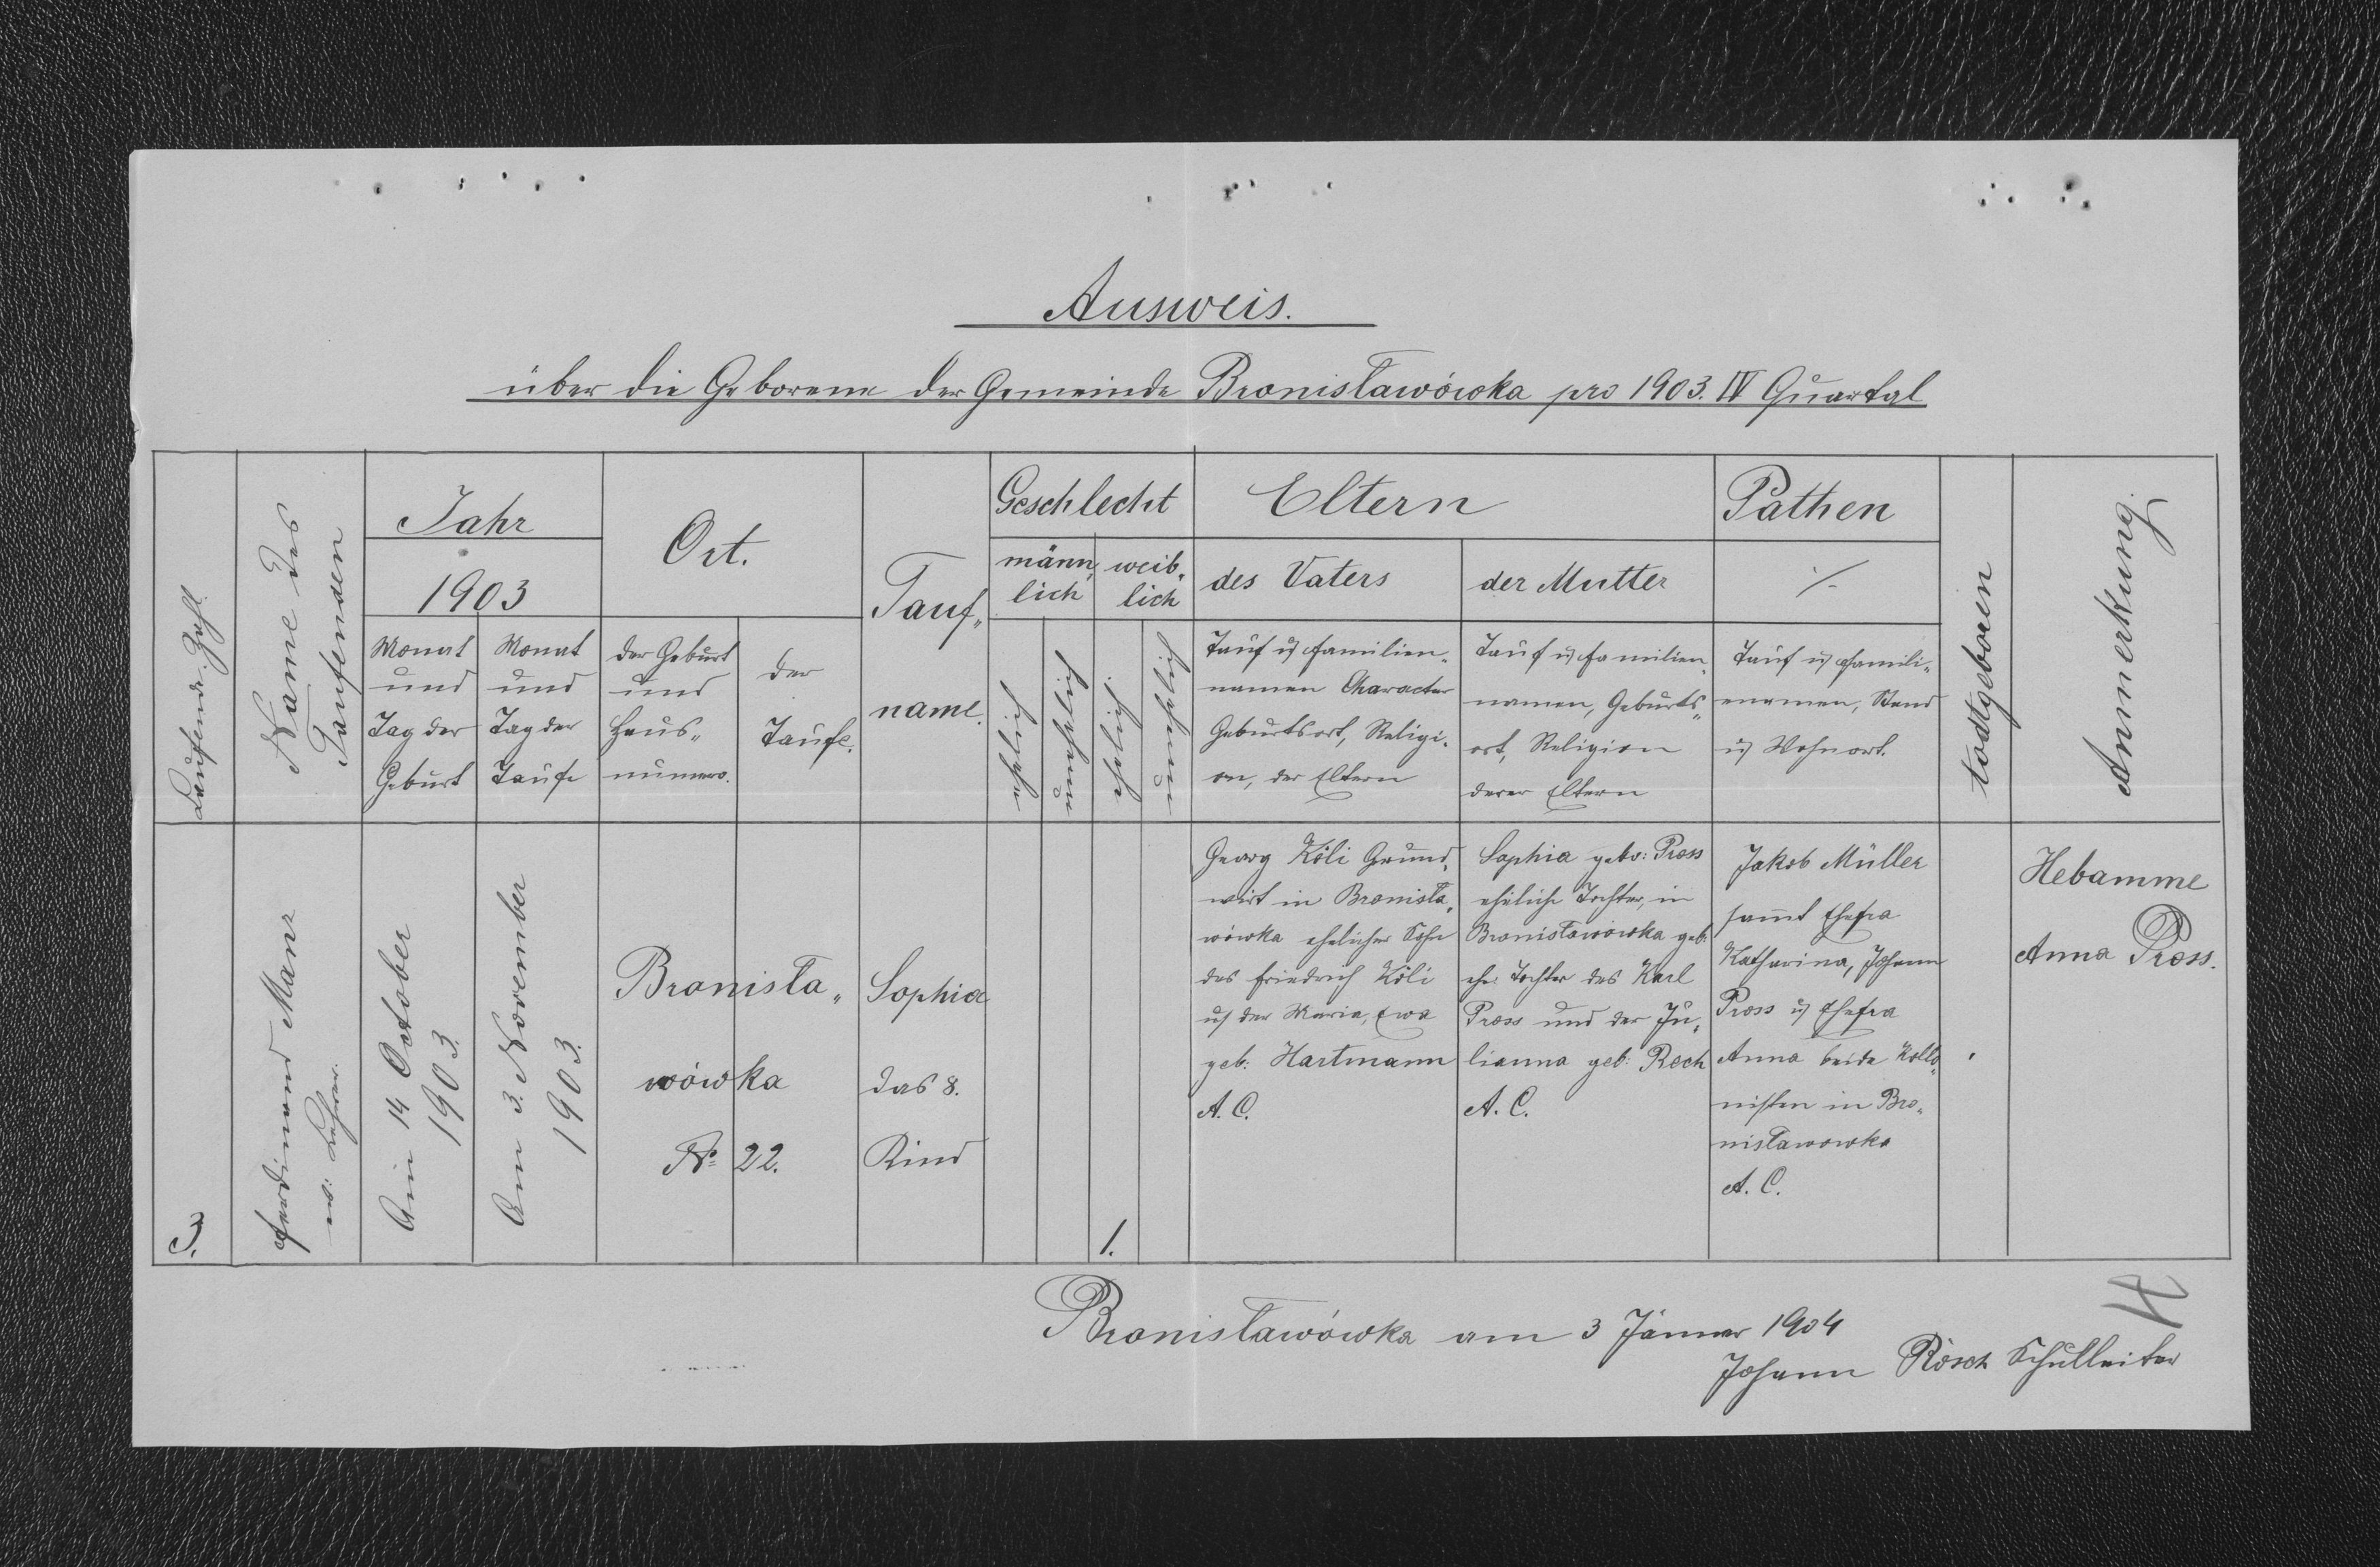 Ausweis.
über die Geborene der Gemeinde Bronisławówka pro 1903. IV Quartal
Laufende Zahl
Name des
Taufenden
Jahr
1903
Monat
und
Tag der
Geburt
Monat
und
Tag der
Taufe
Ort.
der Geburt
und
Haus„
numero.
der
Taufe.
Tauf„
name.
Geschlecht
männ„
lich
weib„
lich
ehelich
unehelich
ehelich
unehelich
Eltern
des Vaters
Tauf u Familien„
namen Character
Geburtsort, Religi„
on, der Eltern
der Mutter
Tauf u Familien„
namen, Geburts„
ort, Religion
derer Eltern
Pathen
Tauf u Famili„
enamen, Stand
u Wohnort.
todtgeboren
Anmerkung.
3.
Ferdinand Manz
ev: Lehrer.
Am 14 October
1903.
Am 3. November
1903.
Bronisła„
wówka
No 22.
Sophia
das 8.
Kind
1.
Georg Köli Grund„
wirt in Bronisła„
wówka ehelicher Sohn
des Friedrich Köli
u der Maria, Ewa
geb: Hartmann
A. C.
Sophia geb: Pross
eheliche Tochter, in
Bronisławówka geb:
ehe: Tochter des Karl
Pross und der Ju„
lianna geb: Rech
A. C.
Jakob Müller
sammt Ehefra
Katharina, Johann
Pross u Ehefra
Anna beide Kollo„
nisten in Bro„
nisławowka
A. C.
Hebamme
Anna Pross.
Bronisławówka am 3 Jänner 1904
Johann Rösch Schulleiter